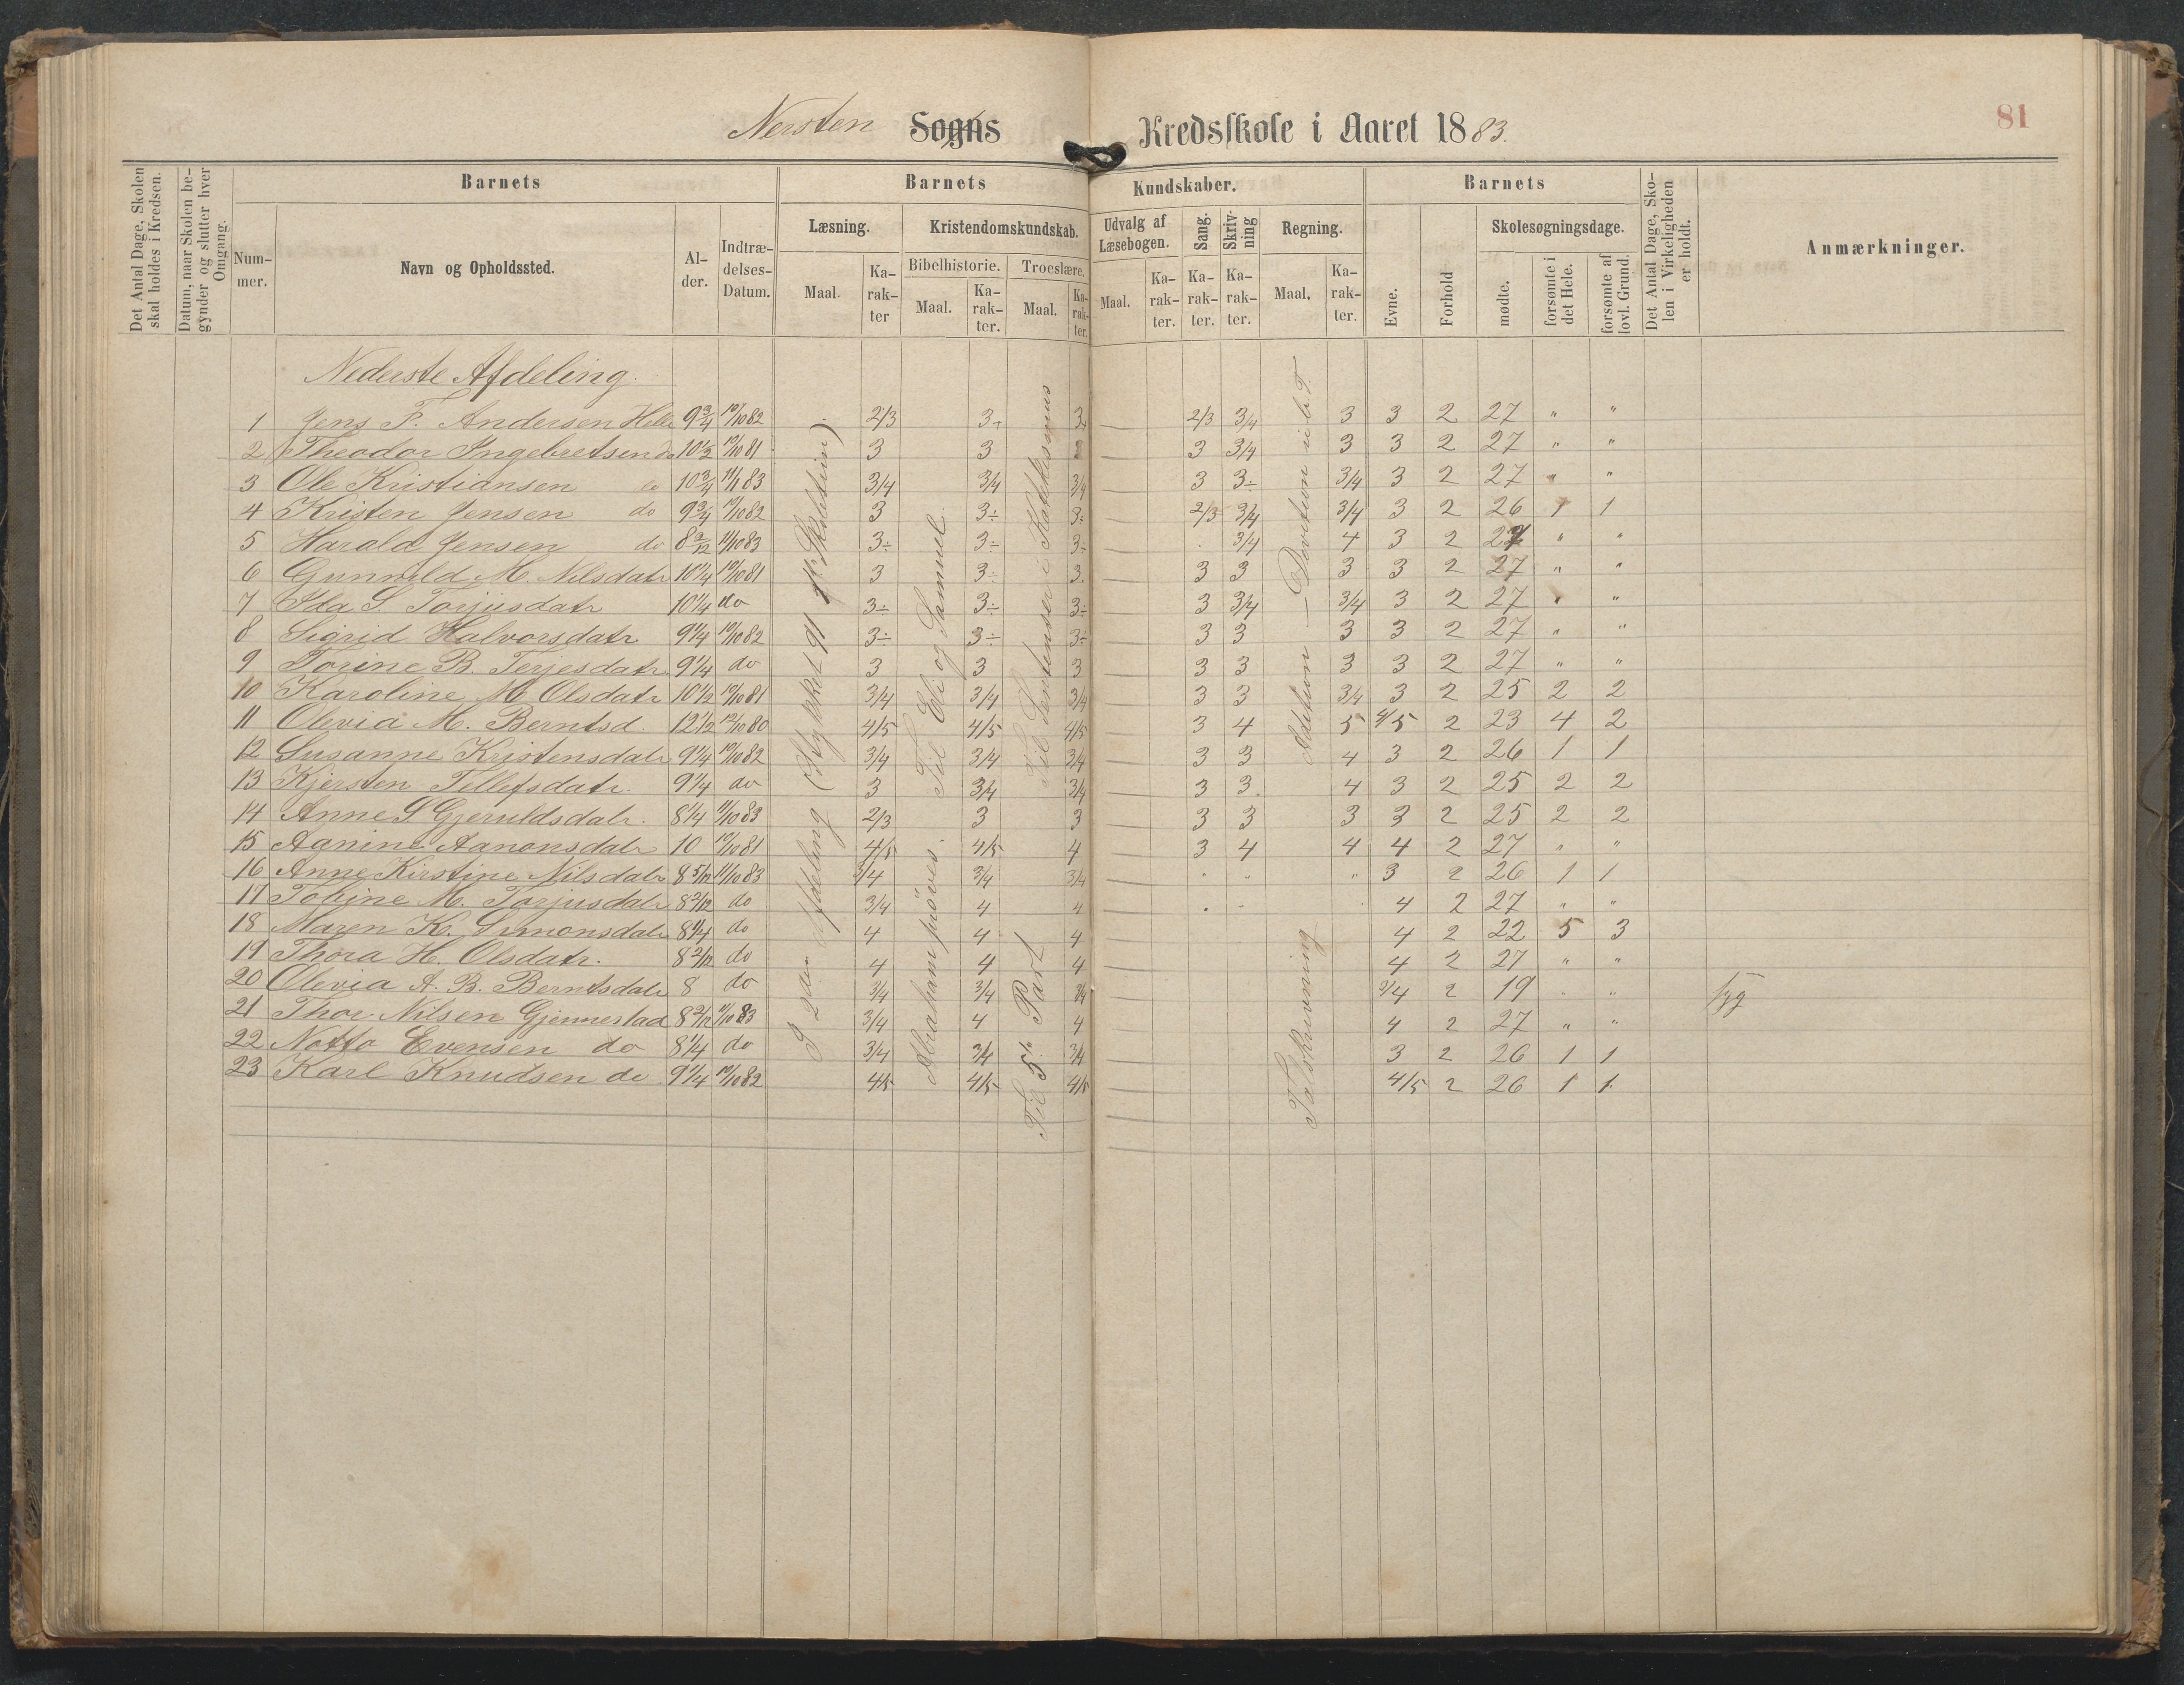 81
Nersten Sogns Kredsskole i Aaret 1883.
Det Antal Dage, Skolen skal holdes i Kredsen.
Datum, naar Skolen begynder og slutter hver Omgang.
Barnets
Nummer.
Navn og Opholdssted.
Alder.
Indtrædelses-Datum.
Barnets Kundskaber.
Læsning.
Maal.
Karakter
Kristendomskundskab.
Bibelhistorie.
Maal.
Karakter.
Troeslære.
Maal.
Karakter.
Udvalg af Læsebogen.
Maal.
Karakter.
Sang.
Karakter.
Skrivning
Karakter.
Regning.
Maal.
Karakter.
Barnets
Evne.
Forhold
Skolesøgningsdage.
mødte.
forsømte i det Hele.
forsømte af lovl. Grund.
Det Antal Dage, Skolen i Virkeligheden er holdt.
Anmærkninger.
Nederste Afdeling.
1 Jens F. Andersen Helle 9 3/4 10/10 82 2/3 3 3 2/3 3/4 3 3 2 27 " "
2 Theodor Ingebretsen do 10 1/2 10/10 81 3 3 3 3/4 3 3 2 27 " "
3 Ole Kristiansen do 10 3/4 11/1 83 3/4 3/4 3/4 3 3÷ 3/4 3 2 27 " "
4 Kristen Jensen do 9 3/4 10/10 82 3 3÷ 3÷ 2/3 3/4 3/4 3 2 26 1 1
5 Harald Jensen do 8 2/12 11/10 83 3÷ 3÷ 3÷ 3/4 4 3 2 27 " "
6 Gunnild M. Nilsdatr 10 1/4 10/10 81 3 3÷ 3 3 3 3 3 2 27 " "
7 Ida S. Torjusdatr 10 1/4 do 3÷ 3÷ 3÷ 3 3/4 3/4 3 2 27 " "
8 Sigrid Halvorsdatr 9 1/4 10/10 82 3÷ 3÷ 3÷ 3 3 3 3 2 27 " "
9 Torine B. Terjesdatr 9 1/4 do 3 3 3 3 3 3 3 2 27 " "
10 Karoline M Olsdatr 10 1/2 10/10 81 3/4 3/4 3/4 3 3 3/4 3 2 25 2 2
11 Olevia M. Berntsd. 12 1/2 12/10 80 4/5 4/5 4/5 3 4 5 4/5 2 23 4 2
12 Susanne Kristensdatr 9 1/4 10/10 82 3/4 3/4 3/4 3 3 4 3 2 26 1 1
13 Kjersten Tellefsdatr. 9 1/4 do 3 3/4 3/4 3 3. 4 3 2 25 2 2
14 Anne S Gjeruldsdatr. 8 1/4 11/10 83 2/3 3 3 3 3 3 3 2 25 2 2
15 Aanine Aanonsdatr 10 10/10 81 4/5 4/5 4 3 4 4 4 2 27 " "
16 Anne Kirstine Nilsdatr 8 5/12 11/10 83 3/4 3/4 3/4 " " " 3 2 26 1 1
17 Tobine M. Torjusdatr 8 2/12 do 3/4 4 4 4 2 27 " "
18 Maren K. Simonsdatr 8 1/4 do 4 4 4 4 2 22 5 3
19 Thora H. Olsdatr. 8 2/12 do 4 4 4 4 2 27 " "
20 Olevia A. B. Berntsdatr 8 do 3/4 3/4 3/4 3/4 2 19 " " syg
21 Thor Nilsen Gjennestad 8 2/12 11/10 83 3/4 4 4 4 2 27 " "
22 Notto Evensen do 8 1/4 do 3/4 3/4 3/4 3 2 26 1 1
23 Karl Knudsen do 9 1/4 10/10 82 4/5 4/5 4/5 4/5 2 26 1 1
I 2den Afdeling (Stykket 91
Til Eli og Samuel.
Abraham prøves.
Til Sentenser i Katekismus
Til 5te Part
Adition – Division
Talskrivning